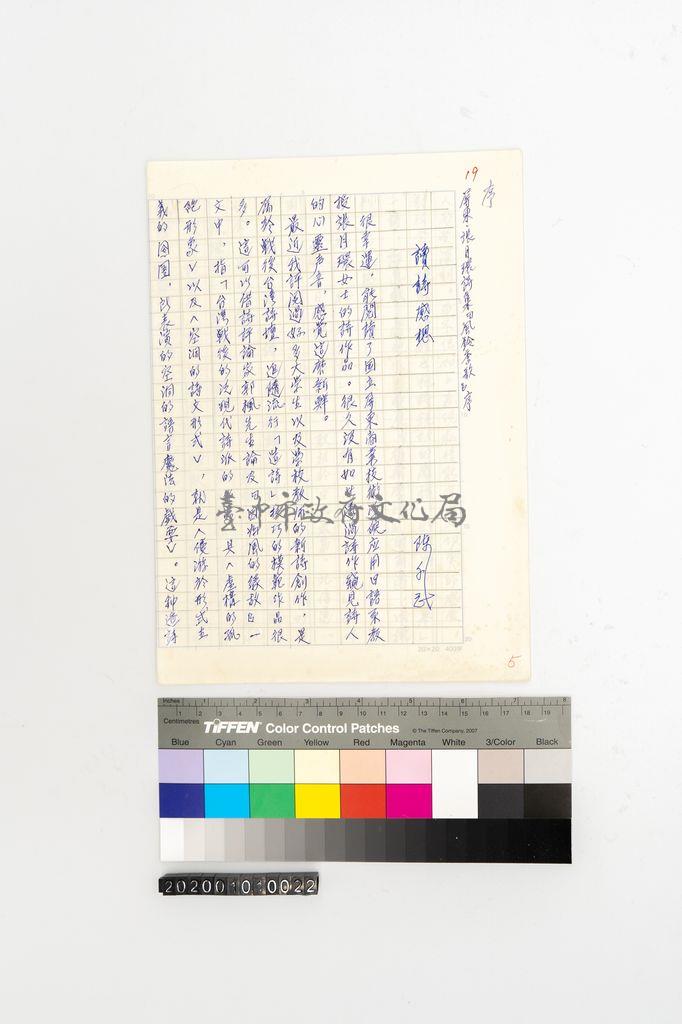 序
19
屏東張月環詩集《風鈴季歌》序
讀詩感想
陳千武
很幸運,能閱讀了國立屏東商業技術學院应用日語系教
授張月環女士的詩作品。很久沒有如此透過詩作窺見詩人
的心靈声音,感覺這麼新鮮。
最近我評閱過好多大學生以及學校教師的新詩創作,是
屬於戰後台灣詩壇,追隨流行「造詩」技巧的模範作品很
多。這可以借詩評論家郭楓先生論及
文中,指「台灣戰後的泛現代詩派的,具〈虛構的孤
絕形象〉以及〈空洞的詩文形式〉,就是〈優游於形式主
義的囹圄,以表演的空洞的語言魔法的戲耍〉。這种造詩
20×20
5
臺中市政府文化局
Inches 1 2 3 4 5 6 7 8
Centimetres 1 2 3 4 5 6 7 8 9 10 11 12 13 14 15 16 17 18 19
TIFFEN Color Control Patches © The Tiffen Company, 2007
Blue Cyan Green Yellow Red Magenta White 3/Color Black
202001010022